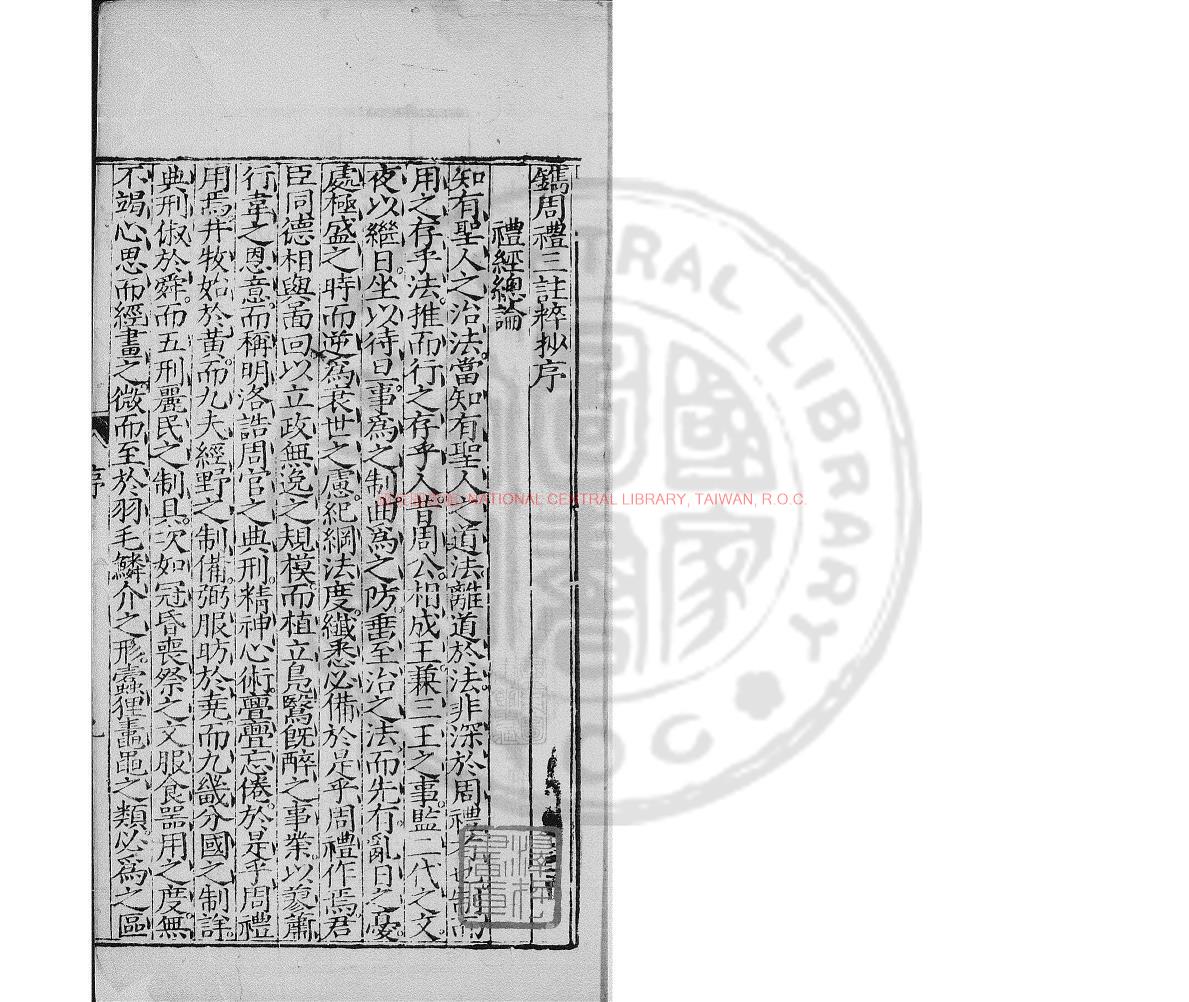 鐫周禮三註粹抄序
禮經總論
知有聖人之治法當知有聖人之道法離道於法非深於周禮
用之存乎法推而行之存乎人昔周公相成王兼三王之事監二代之文
夜以繼日坐以待旦事爲之制曲爲之防垂至治之法而先有亂日之憂
處極盛之時而逆爲衰世之慮紀綱法度纖悉必備於是乎周禮作焉君
臣同德相與啚回以立政無逸之規模而植立鳧鷖旣醉之事業以蓼蕭
行葦之恩意而稱明洛誥周官之典刑精神心術亹亹忘倦於是乎周禮
用焉井牧始於黃而九夫經野之制備弼服昉於堯而九畿分國之制詳
典刑俶於舜而五刑麗民之制具次如冠昏喪祭之文服食器用之度無
不竭心思而經畫之微而至於羽毛鱗介之形蠹貍鼃黽之類必爲之區
序
NATIONAL CENTRAL LIBRARY, TAIWAN, R.O.C.
CENTRAL LIBRARY
R O C
國家圖書館